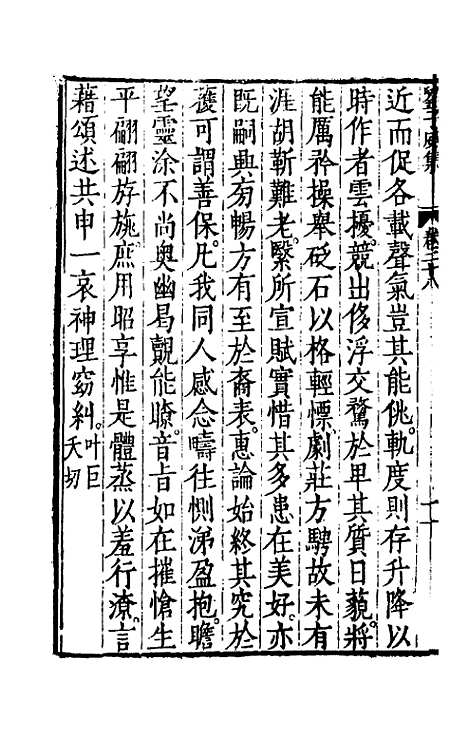 近而促各載聲氣豈其能佻軌度則存升降以
時作者雲擾競出侈浮交騖於卑其質日藐將
能厲矜操舉砭石以格輕慓劇莊方騁故未有
涯胡靳難老繄所宣賦實惜其多患在美好亦
既嗣典匆暢方有至於裔表惠論始終其究於
襃可謂善保凡我同人感念疇往惻涕盈抱瞻
望靈涂不尚奥幽曷覿能瞭音旨如在摧愴生
平翩翩斿旐庶用昭享惟是體蒸以羞行潦言
藉頌述共申一哀神理窈糾叶巨夭切